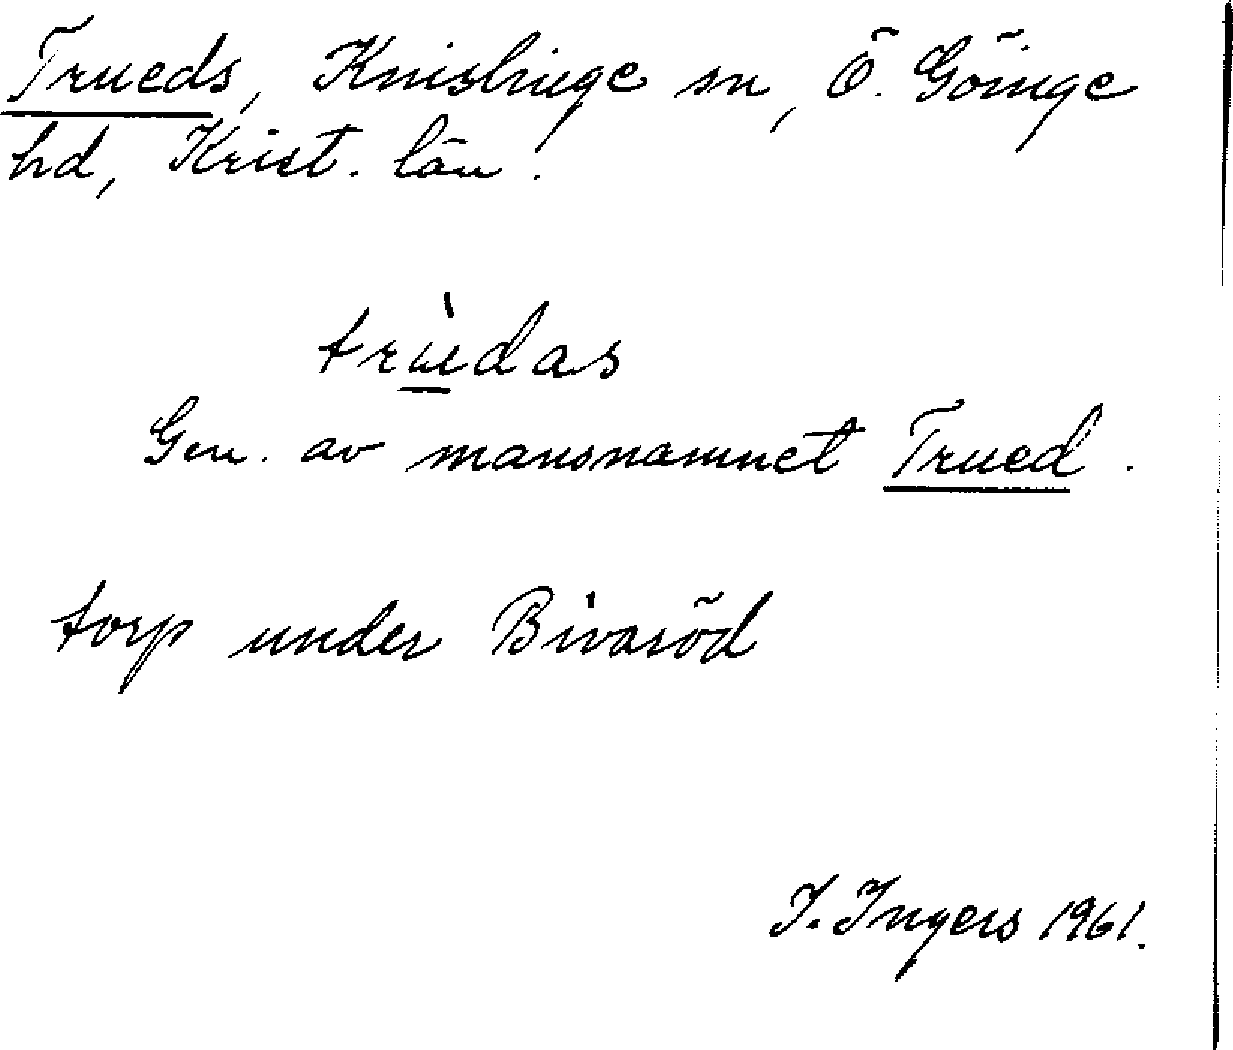 Trueds, Knislinge sn, Ö. Göinge
hd, Krist. län.
trùedas
Gen. av mansnamnet Trued.
torp under Bivaröd
I. Ingers 1961.